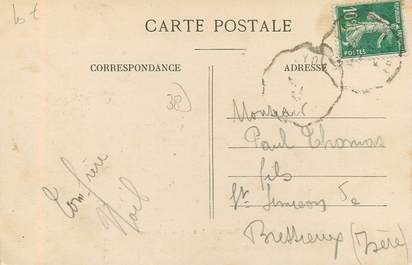 CARTE POSTALE
CORRESPONDANCE
ADRESSE
10c
POSTES
38
Ton frère
Noël
Monsieur
Paul Thomas
fils
St Simeon de
Bressieux (Isère)